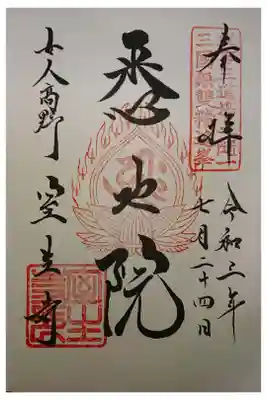 奉拝
令和三年
七月二十四日
悉地院
女人高野 室生寺